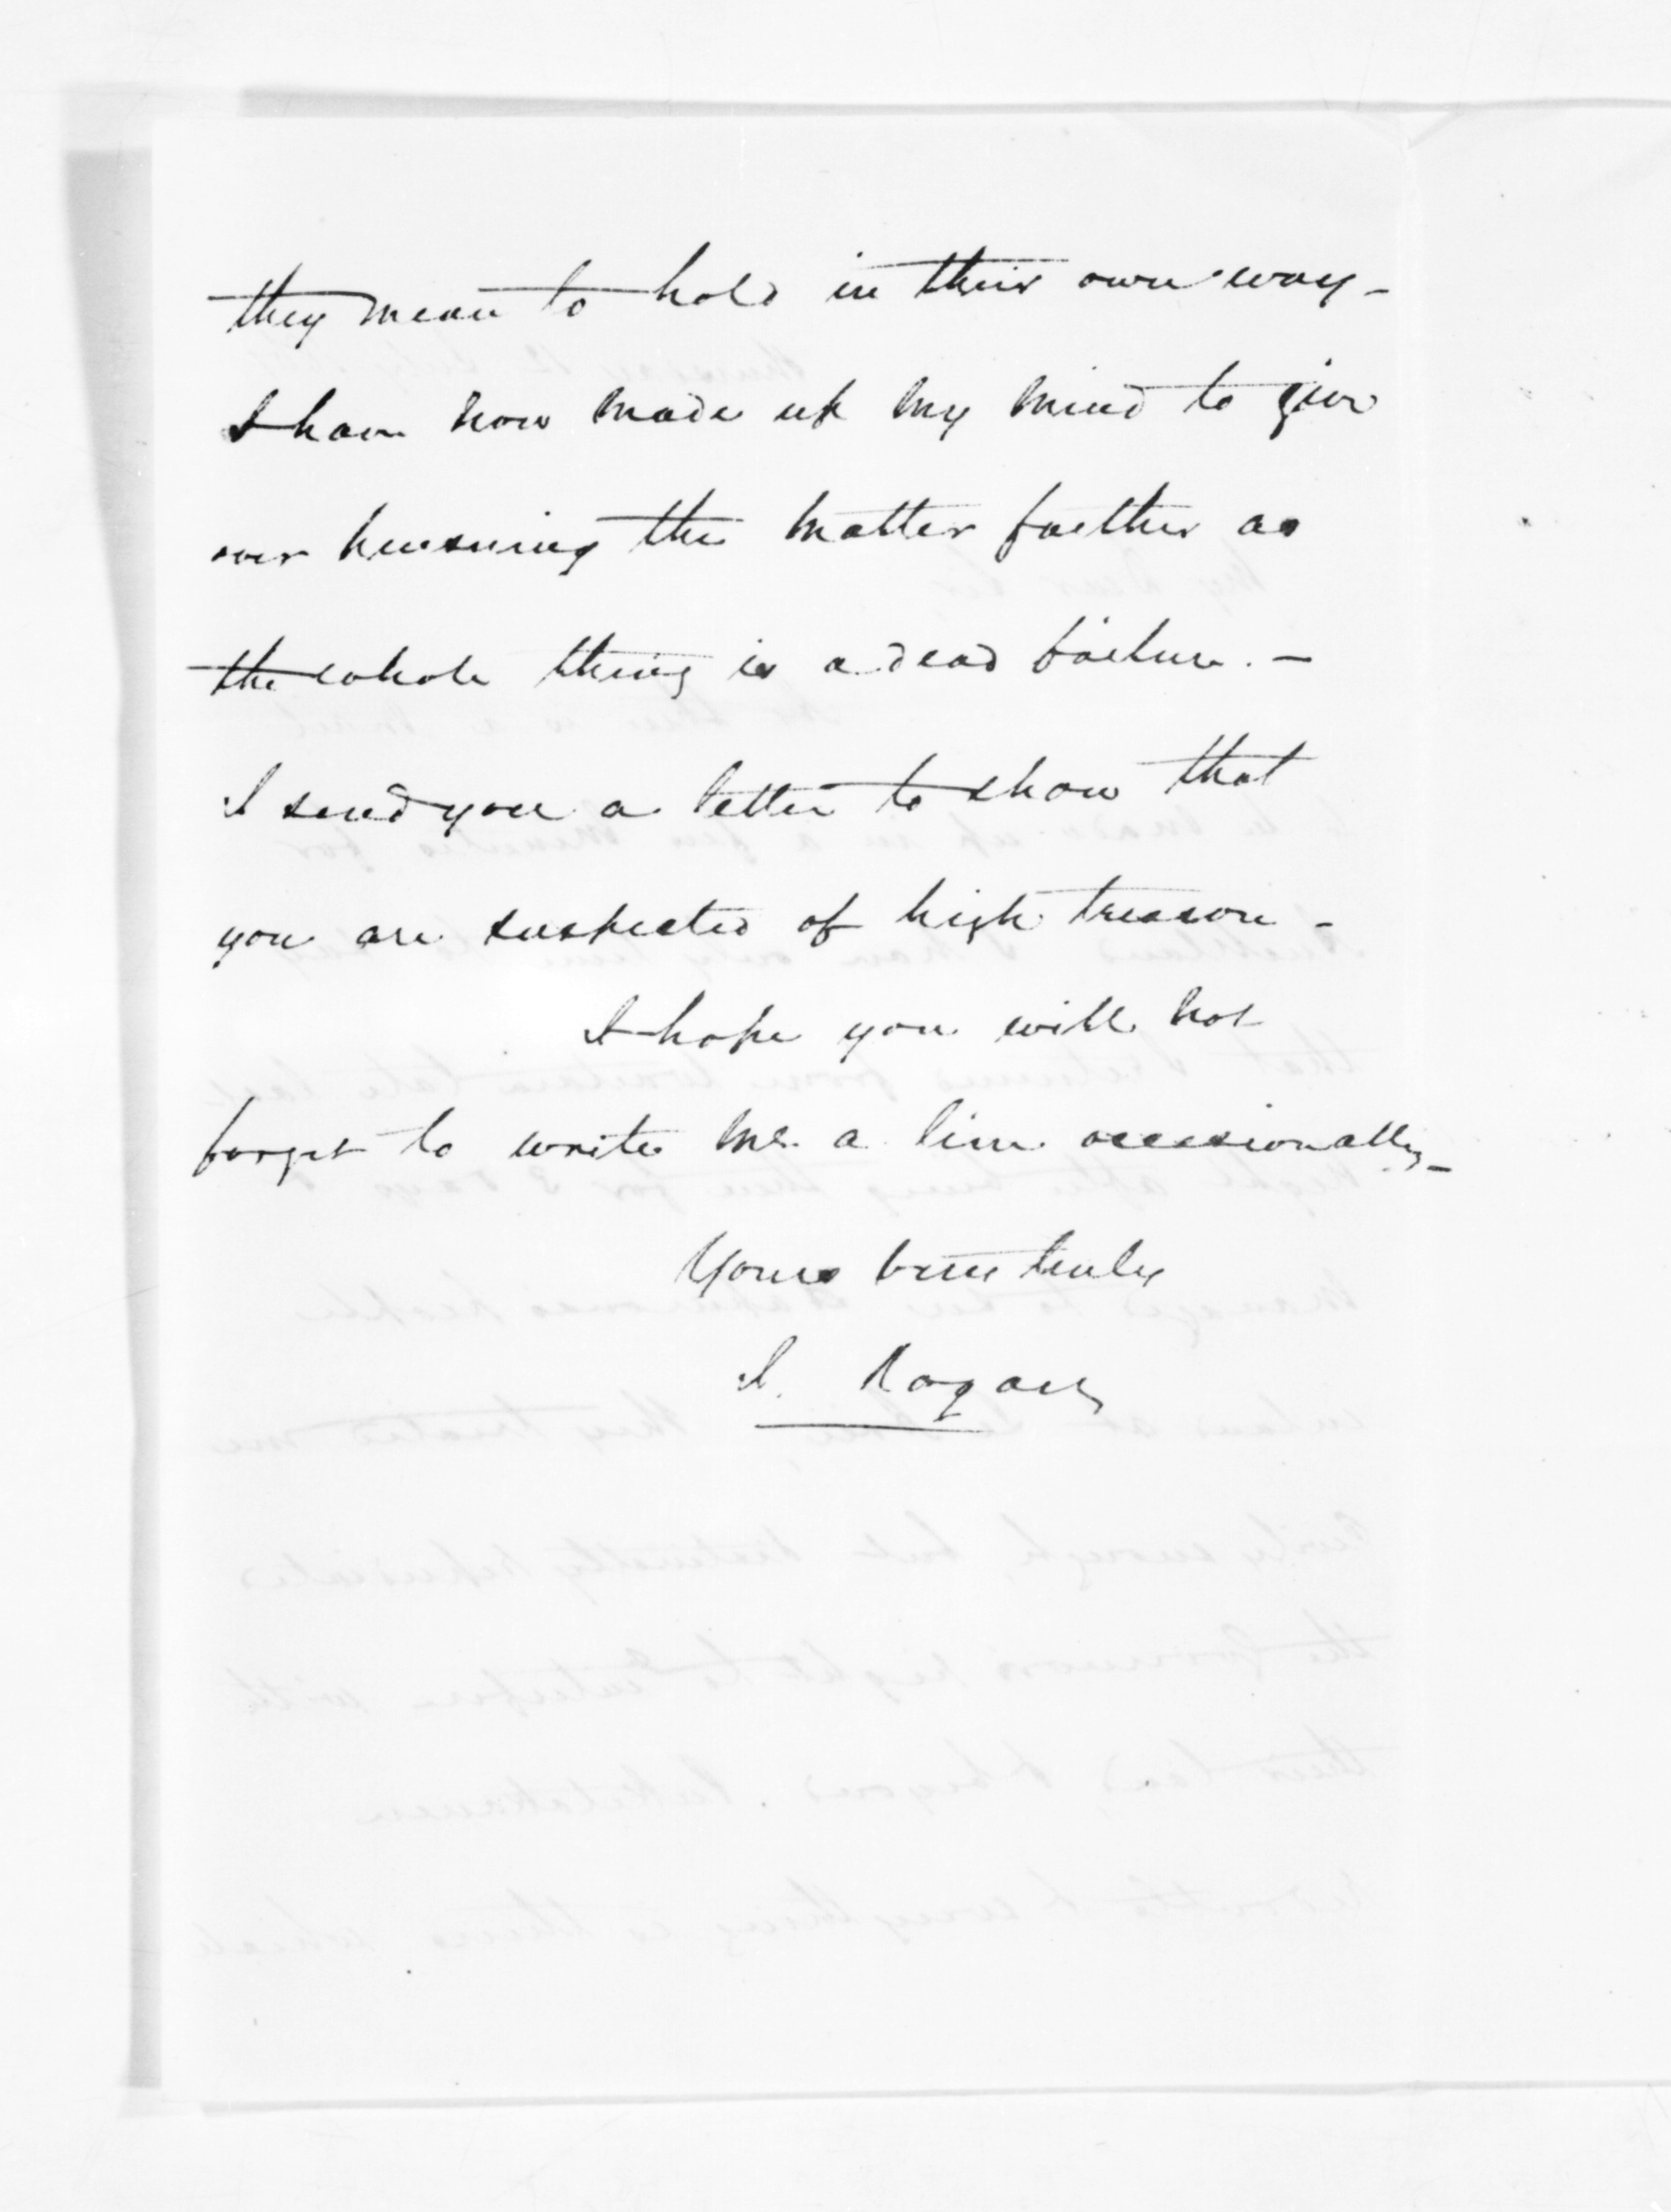 they mean to hold in their own way -
I have now made up my mind to give
over pursuing the matter further as
the whole thing is a dead failure. -
I send you a letter to show that
you are suspected of high treason -
I hope you will not
forget to write me a line occasionally -
Yours very truly
J. Rogan